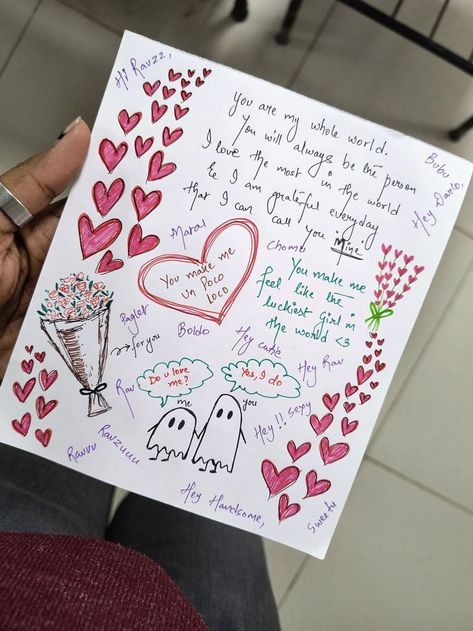 Hi Ravzz,
You are my whole world.
You will always be the person
I love the most in the world
& I am grateful everyday
that I can call you
Mine
Bubu
Hey Darlo!
Maral
Chomu
You make me
Un Poco
Loco
You make me
feel like the
luckiest girl in
the world <3
Paglet
for you
Boldo
Hey cutie
Hey Rav
Do u love
me?
Yes, I do
me
you
Rav
Hey!! sexy
Ravvu
Ravzuuu
Hey Handsome,
Sweetu